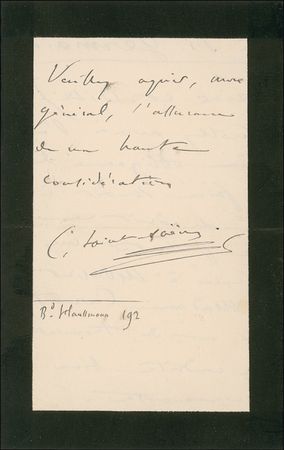 Veuillez agréer, mon
général, l'assurance
de ma haute
considération
C. Saint-Saëns
Bd. Haussmann 192